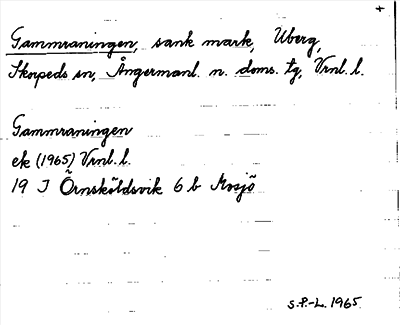 +
Gammraningen, sank mark, Uberg,
Skorpeds sn, Ångermanl. n. doms. tg, Vrnl. l.
Gammraningen
ek (1965) Vrnl. l.
19 I Örnsköldsvik 6 b Mosjö
S.P.-L. 1965